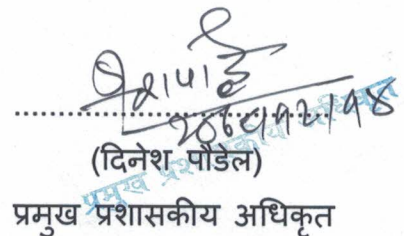 (दिनेश पौडेल)
प्रमुख प्रशासकीय अधिकृत
प्रमुख प्रशासकीय अधिकृत